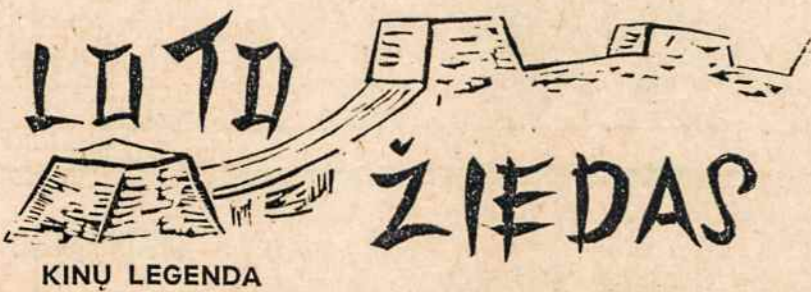 LOTO
ŽIEDAS
KINŲ LEGENDA